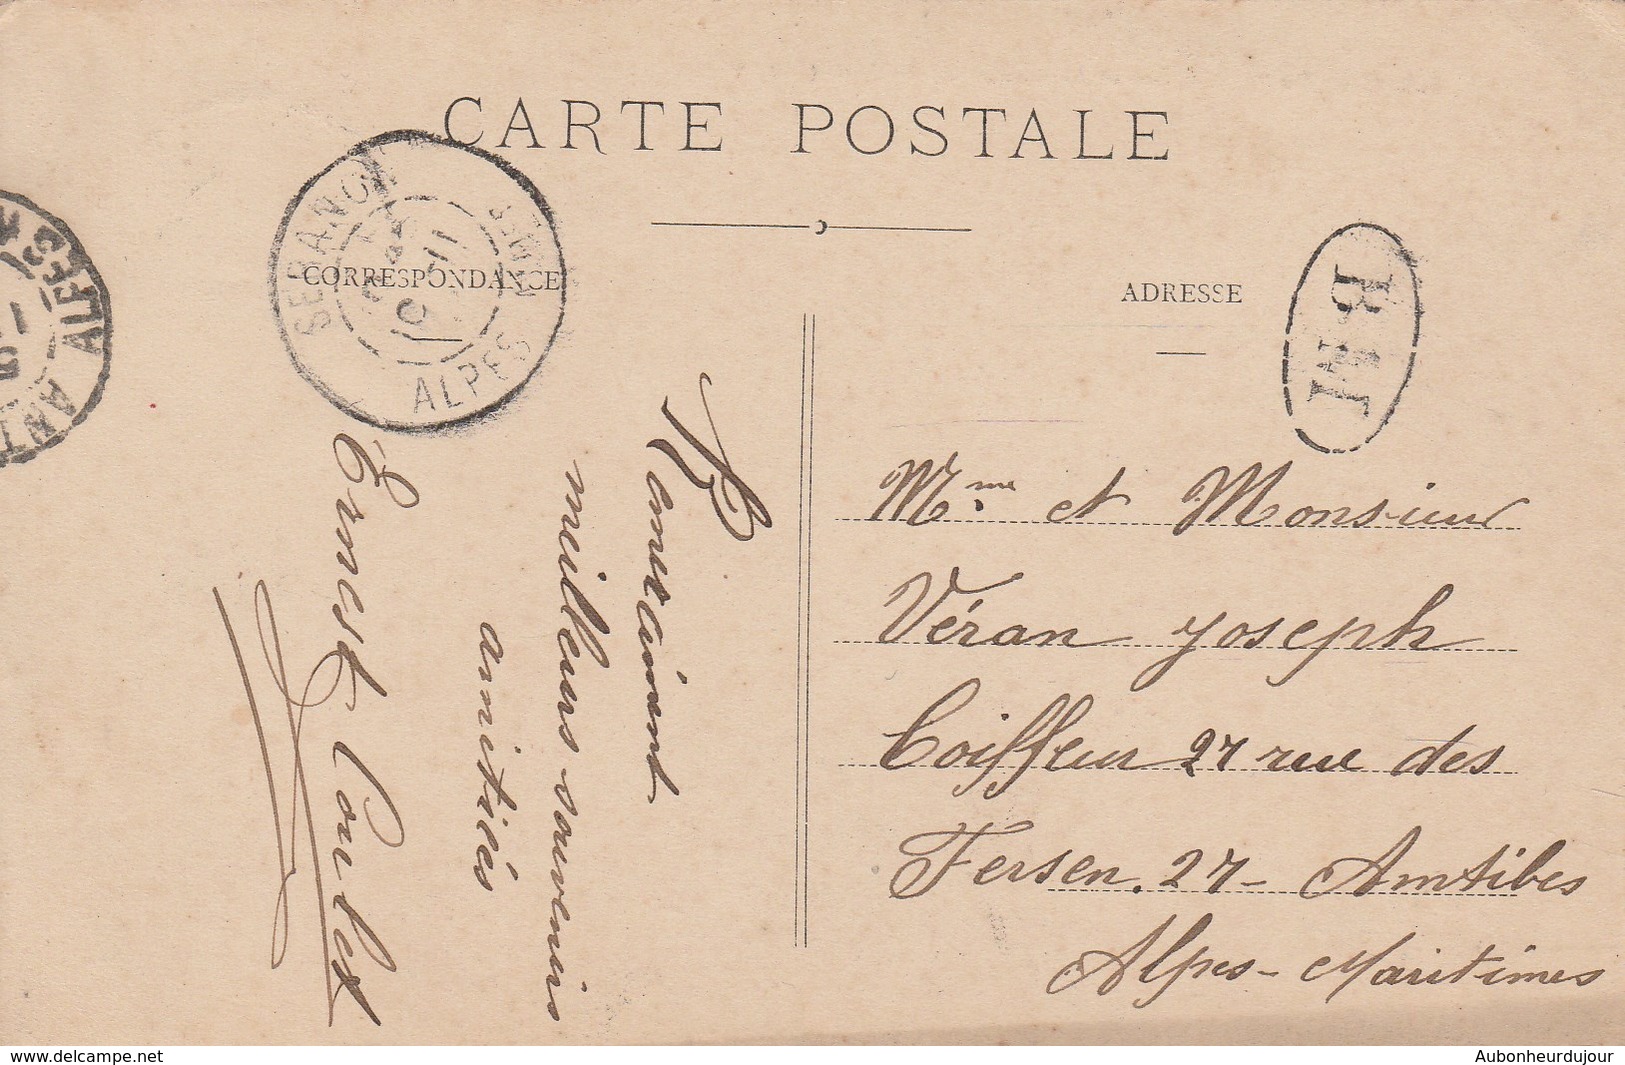 CARTE POSTALE
CORRESPONDANCE
ADRESSE
SERANON
ALPES
BM
ALPES
ANT
Mme et Monsieur
Véran Joseph
Coiffeur 27 rue des
Fersen. 27 - Antibes
Alpes-Maritimes
meilleurs souvenirs
amitiés
Ernest Coulet
www.delcampe.net
Aubonheurdujour